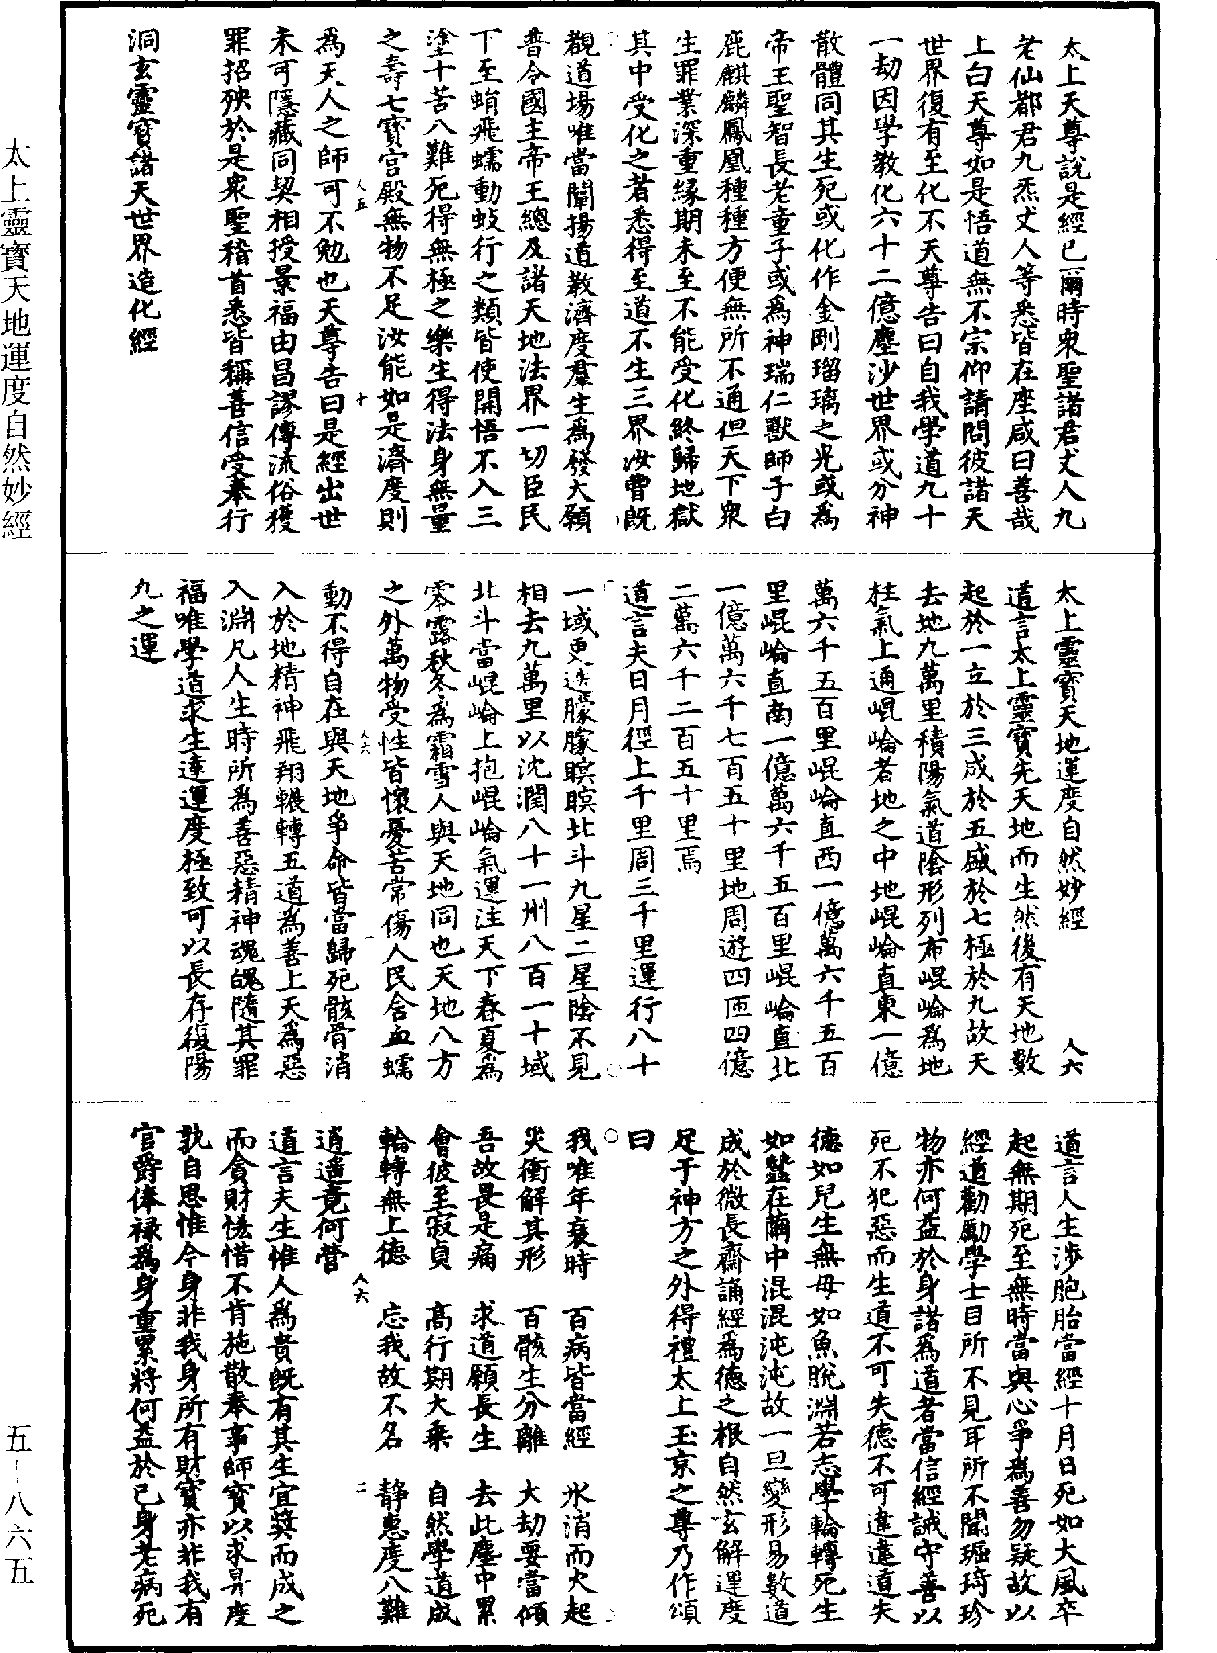 太上天尊說是經已爾時衆聖諸君丈人九
老仙都君九炁丈人等悉皆在座咸曰善哉
上白天尊如是悟道無不宗仰請問彼諸天
世界復有至化不天尊告曰自我學道九十
一劫因學教化六十二億塵沙世界或分神
散體同其生死或化作金剛瑠璃之光或爲
帝王聖智長老童子或爲神瑞仁獸師子白
鹿麒麟鳳凰種種方便無所不通但天下衆
生罪業深重緣期未至不能受化終歸地獄
其中受化之者悉得至道不生三界汝曹旣
觀道場唯當闡揚道教濟度羣生爲發大願
普令國主帝王總及諸天地法界一切臣民
下至蛸飛蠕動蚑行之類皆使開悟不入三
塗十苦八難死得無極之樂生得法身無量
之壽七寶宮殿無物不足汝能如是濟度則
爲天人之師可不勉也天尊告曰是經出世
未可隱藏同契相授景福由昌謬傳流俗獲
罪招殃於是衆聖稽首悉皆稱善信受奉行
洞玄靈寶諸天世界造化經
太上靈寶天地運度自然妙經 人六
道言太上靈寶先天地而生然後有天地數
起於一立於三成於五盛於七極於九故天
去地九萬里積陽氣道陰形列布崐崘爲地
柱氣上通崐崘者地之中地崐崘直東一億
萬六千五百里崐崘直西一億萬六千五百
里崐崘直南一億萬六千五百里崐崘直北
一億萬六千七百五十里地周遊四匝四億
二萬六千二百五十里焉
道言夫日月徑上千里周三千里運行八十
一域更迭朦朦瞑瞑北斗九星二星陰不見
相去九萬里以沈潤八十一州八百一十域
北斗當崐崘上抱崐崘氣運注天下春夏爲
零露秋冬爲霜雪人與天地同也天地八方
之外萬物受性皆懷憂苦常傷人民含血蠕
動不得自在與天地爭命皆當歸死骸骨消
入於地精神飛翔輾轉五道爲善上天爲惡
入淵凡人生時所爲善惡精神魂魄隨其罪
福唯學道求生達運度極致可以長存復陽
九之運
道言人生涉胞胎當經十月日死如大風卒
起無期死至無時當與心爭爲善勿疑故以
經道勸勵學士目所不見耳所不聞瑶琦珍
物亦何益於身諸爲道者當信經誡守善以
死不犯惡而生道不可失德不可違違道失
德如兒生無母如魚脫淵若志學輪轉死生
如蠶在繭中混混沌沌故一旦變形易數道
成於微長齋誦經爲德之根自然玄解運度
足于神方之外得禮太上玉京之尊乃作頌
曰
我唯年衰時 百病皆當經 氷消而火起
災衝解其形 百骸生分離 大劫要當傾
吾故畏是痛 求道願長生 去此塵中累
會彼至寂貞 高行期大乘 自然學道成
輪轉無上德 忘我故不名 静惠度八難
逍遥竟何營
道言夫生惟人爲貴旣有其生宜奬而成之
而貪財悋惜不肯施散奉事師寶以求昇度
孰自思惟今身非我身所有財寶亦非我有
官爵俸禄爲身重累將何益於已身老病死
太上靈寶天地運度自然妙經
五—八六五